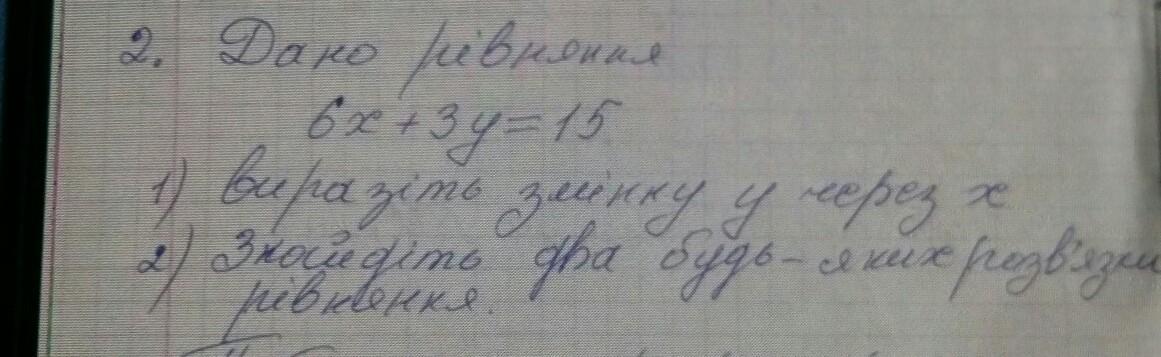 2. Дано рівняння
6x+3y=15
1) Виразіть змінну y через x
2) Знайдіть два будь-яких розв'язки
рівняння.